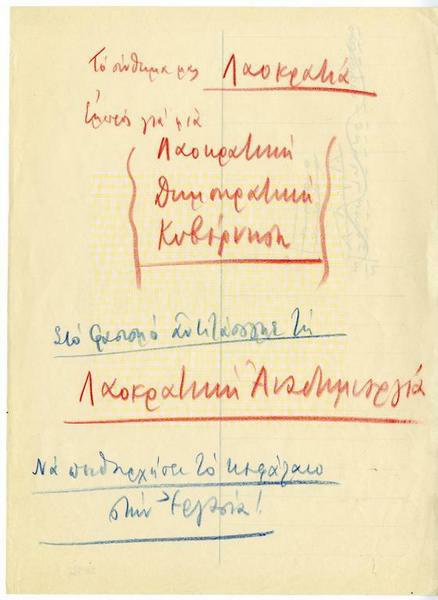 Τό σύνθημα μας Λαοκρατία
Ἐμπρός γιά μιά
Λαοκρατική
Δημοκρατική
Κυβέρνηση
Στό φασισμό ἀντιτάσουμε τή
Λαοκρατική Ἀναδημιουργία
Νά πειθαρχήσει τό κεφάλαιο
στήν Ἐργασία!